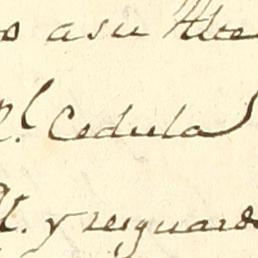 o a su Alte
l. Cedula
l. y resguard